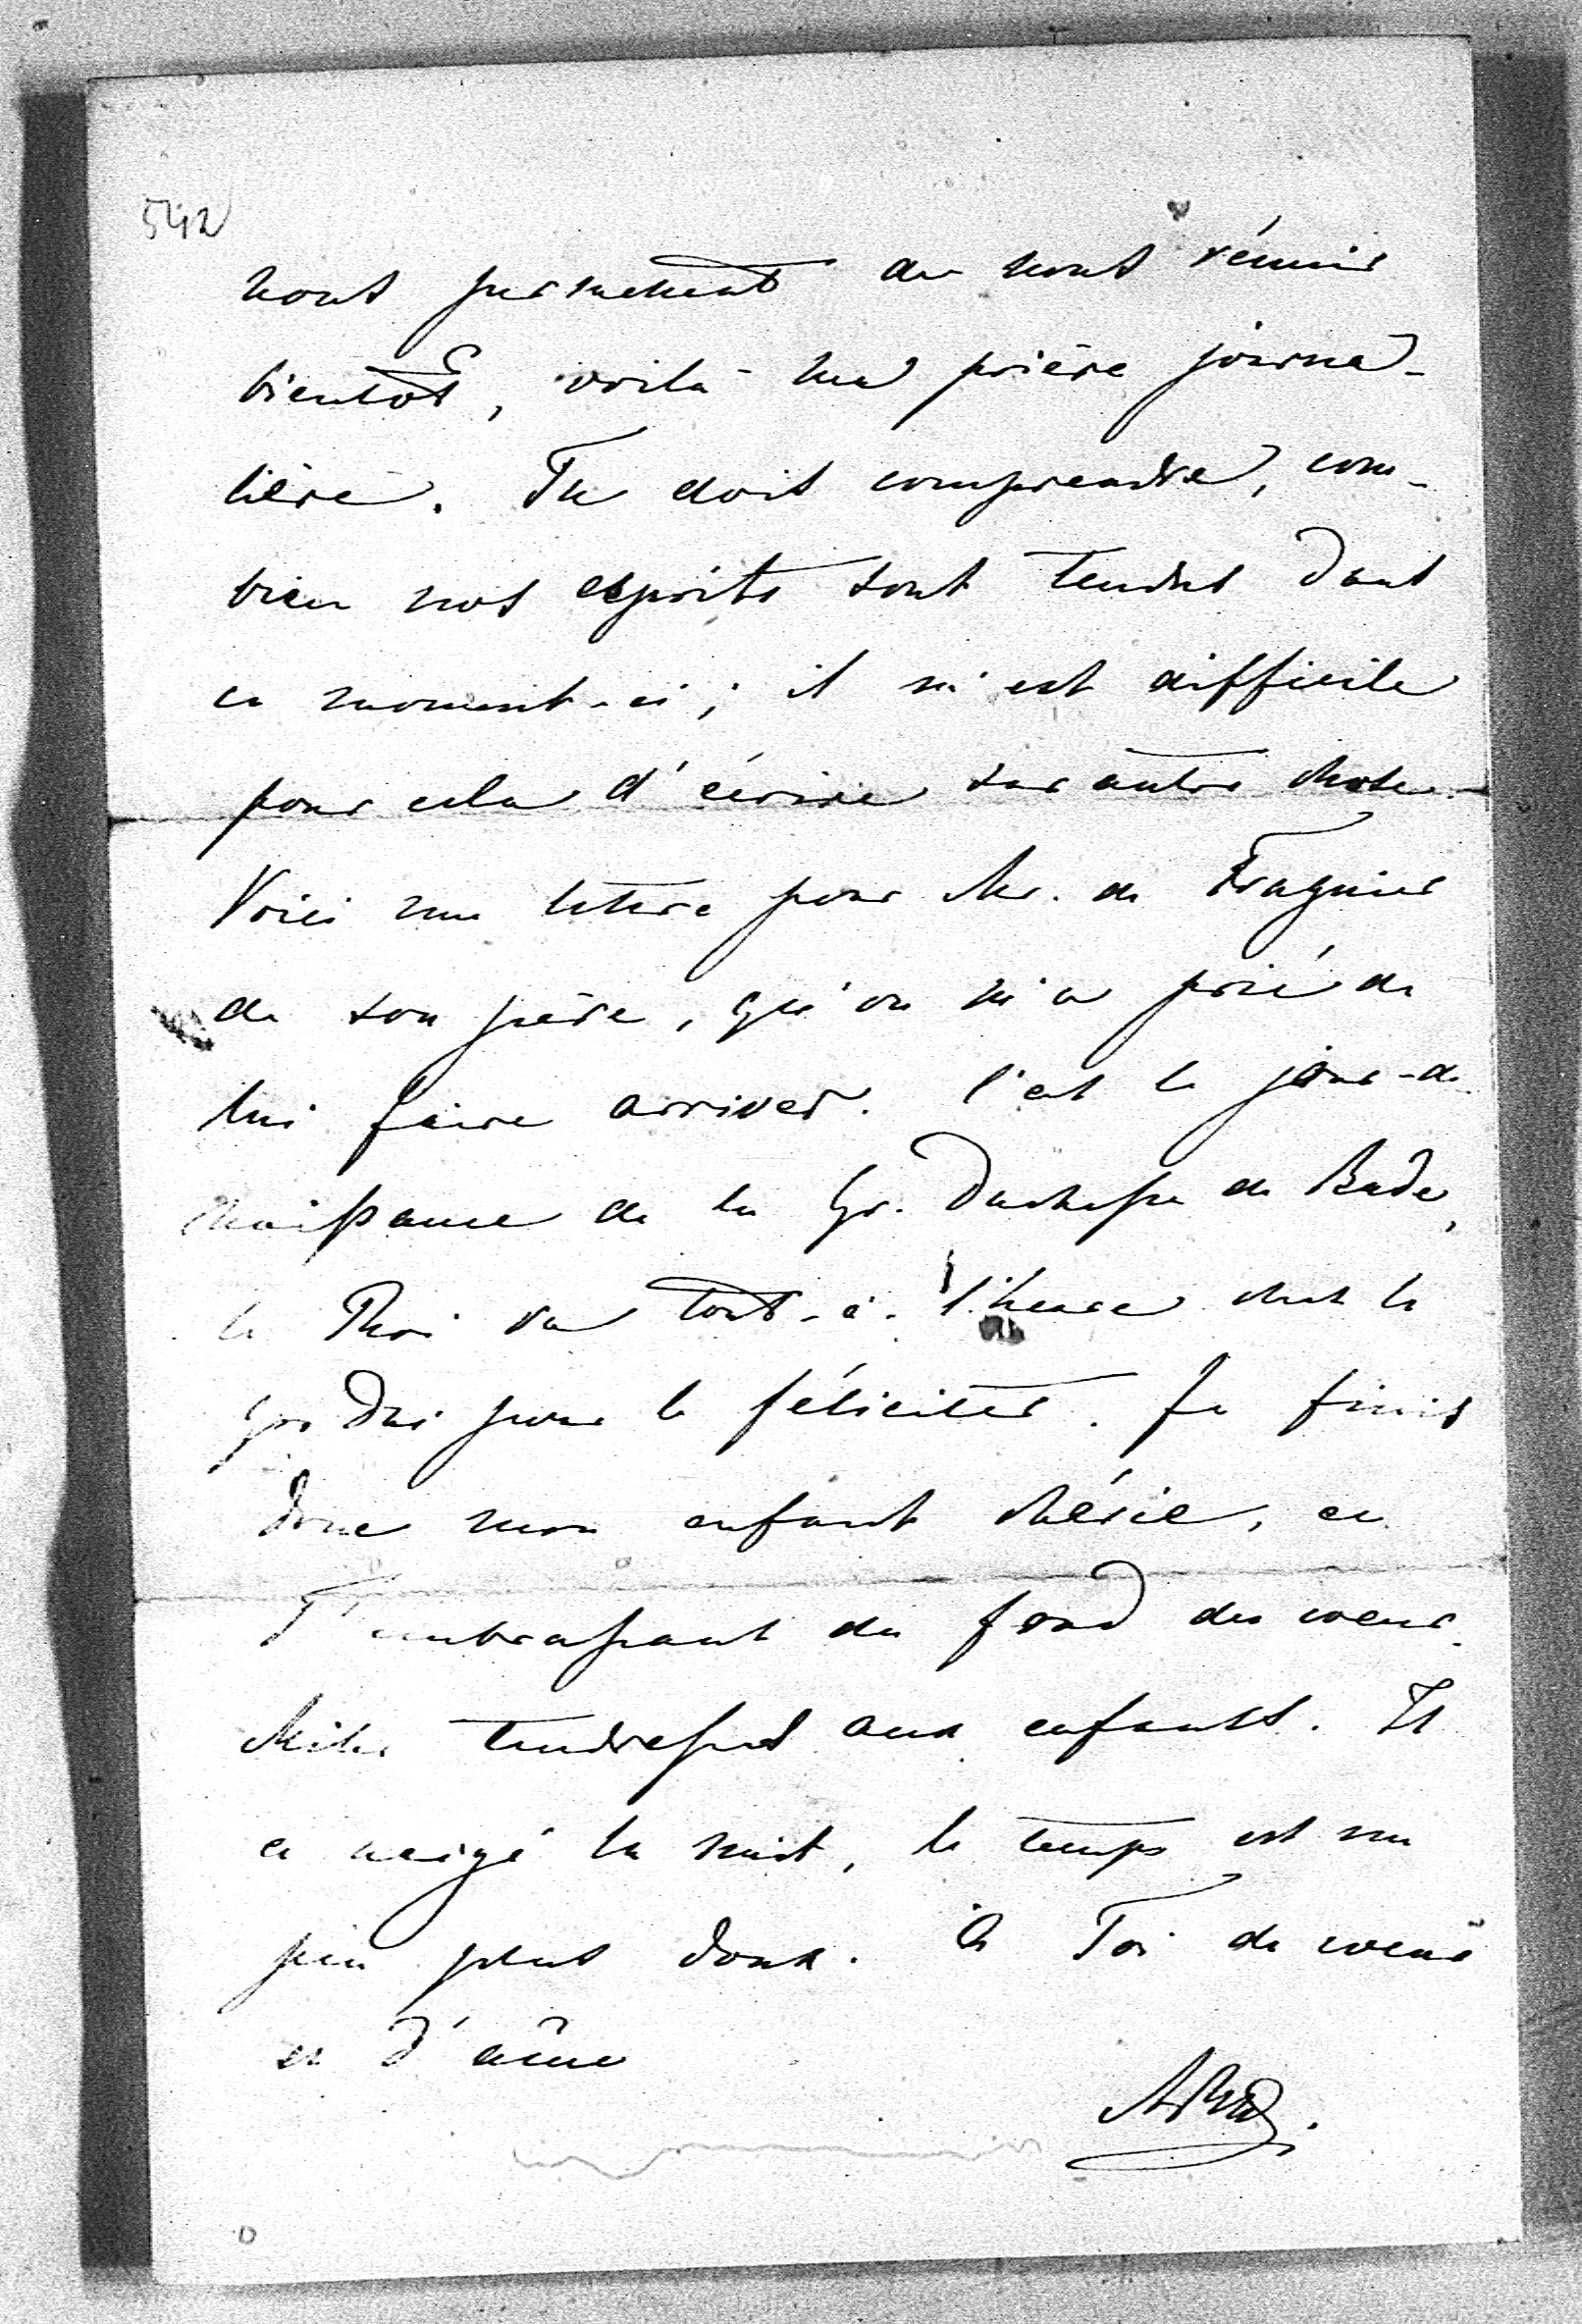 542
nous permettent de nous réunir
bientôt, voilà ma prière journa-
lière. Tu dois comprendre, com-
bien nos esprits sont tendus dans
ce moment-ci; il m'est difficile
pour cela d'écrire sur autre chose.
Voici une lettre pour Mr. de
de son père, qu'on m'a prié de
lui faire arriver. C'est le jour de
naissance de la Gr. Duchesse de Bade,
le Roi va tout-à-l'heure chez le
Gr. Duc pour le féliciter. Je finis
donc mon enfant chérie, en
T'embrassant du fond du coeur.
Milles tendresses aux enfants. Il
a neigé la nuit, le temps est un
peu plus doux. à Toi de coeur
et d'âme